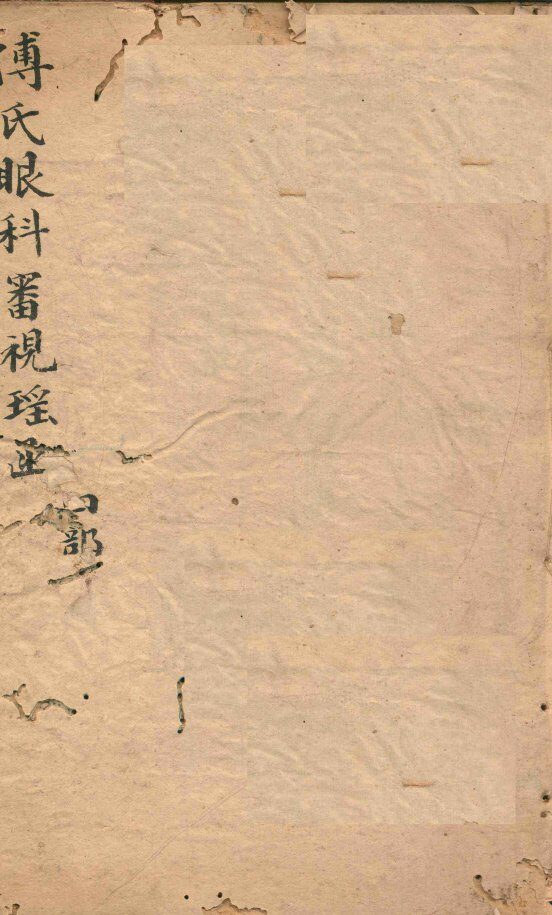 傅氏眼科審視瑶函
部